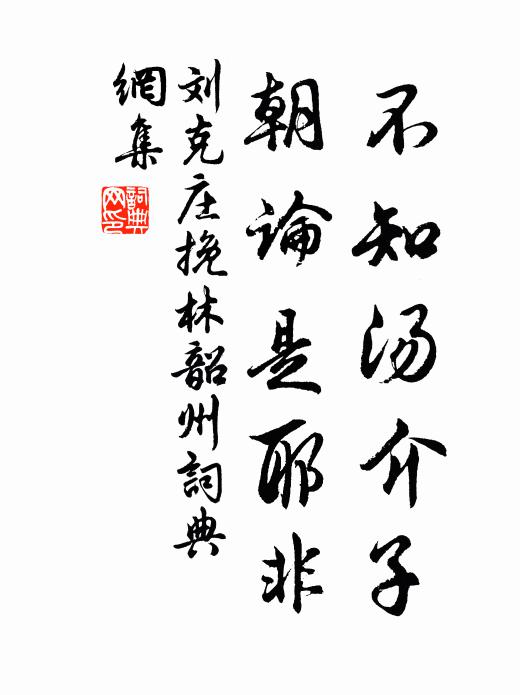 不知汤介子
朝論是耶非
刘克庄挽林韶州詞典
網集
詞典網印